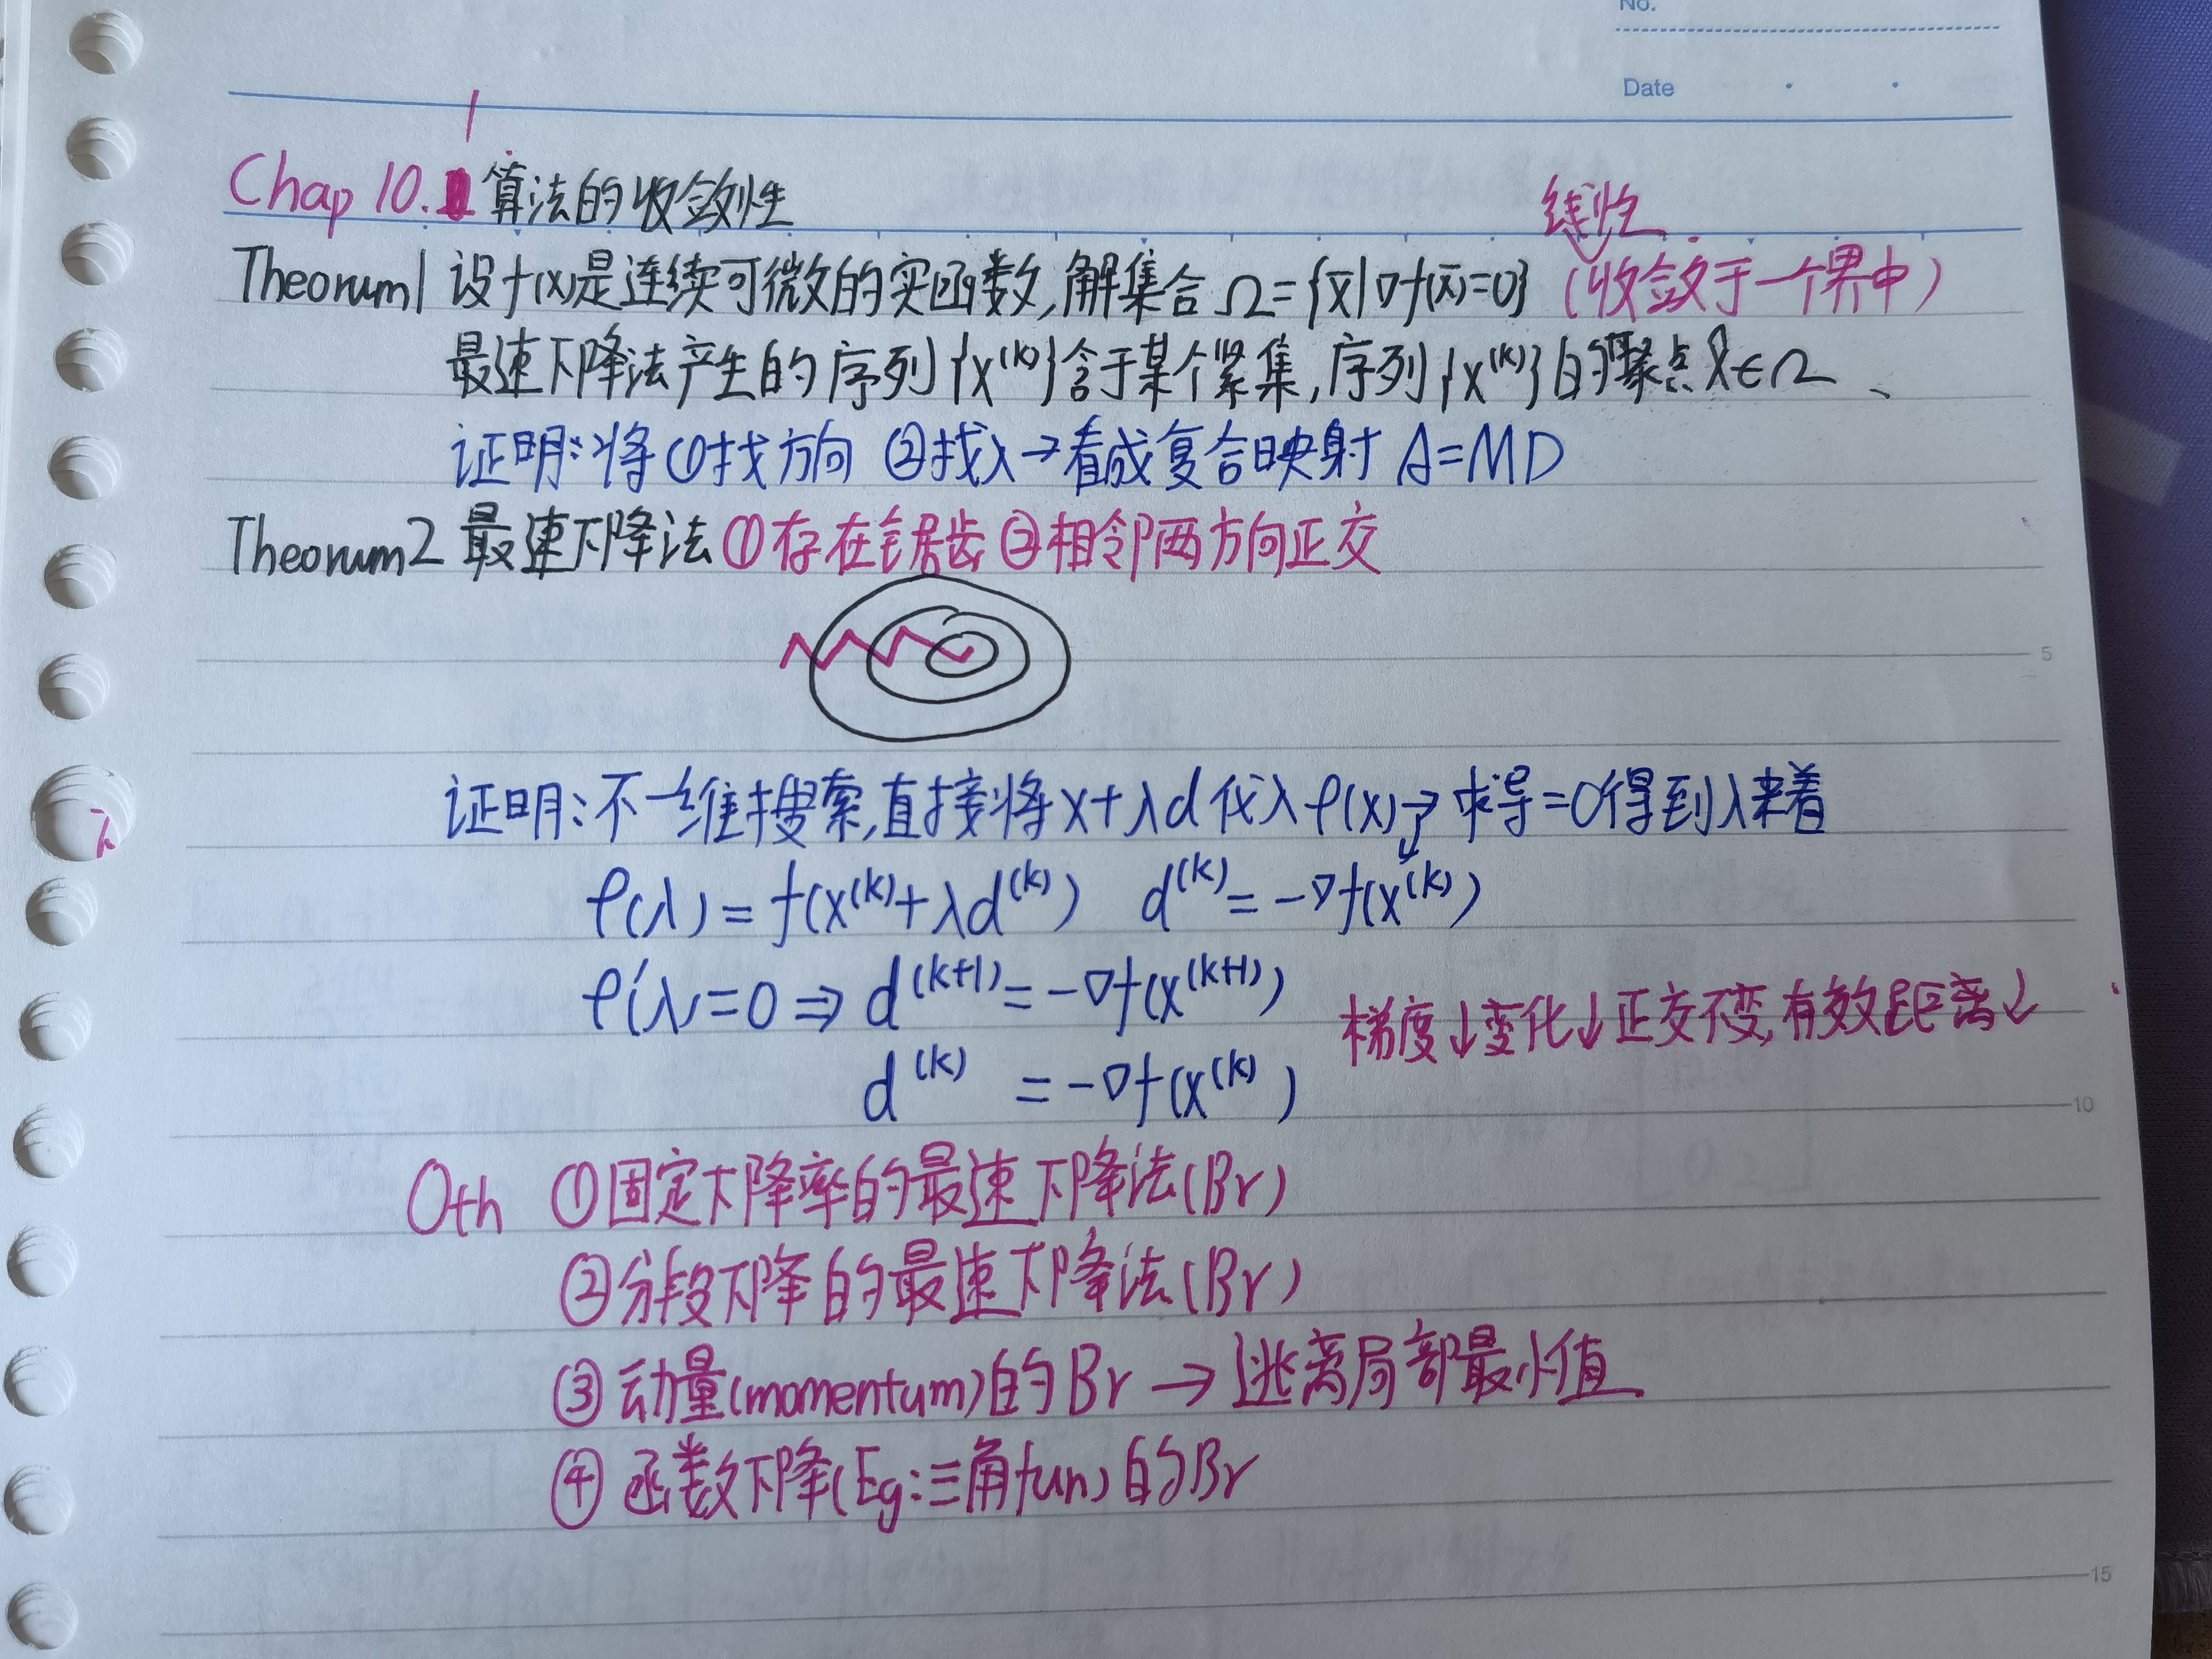 No.
Date
1
Chap 10. 算法的收敛性
线性
Theorum1 设f(x)是连续可微的实函数,解集合 Ω={x̄|∇f(x̄)=0} (收敛于一个界中)
最速下降法产生的序列{x^(k)}含于某个紧集,序列{x^(k)}的聚点x̂∈Ω、
证明:将①找方向 ②找λ→看成复合映射 A=MD
Theorum2 最速下降法①存在锯齿②相邻两方向正交
5
证明:不一维搜索,直接将x+λd代入φ(x)→求导=0得到λ来着
φ(λ)=f(x^(k)+λd^(k)) d^(k)=-∇f(x^(k))
φ'(λ)=0⇒d^(k+1)=-∇f(x^(k+1))
梯度↓变化↓正交不变,有效距离↓
d^(k) =-∇f(x^(k))
10
Oth ①固定下降率的最速下降法(Br)
②分段下降的最速下降法(Br)
③动量(momentum)的Br→逃离局部最小值
④函数下降(Eg:三角fun)的Br
15